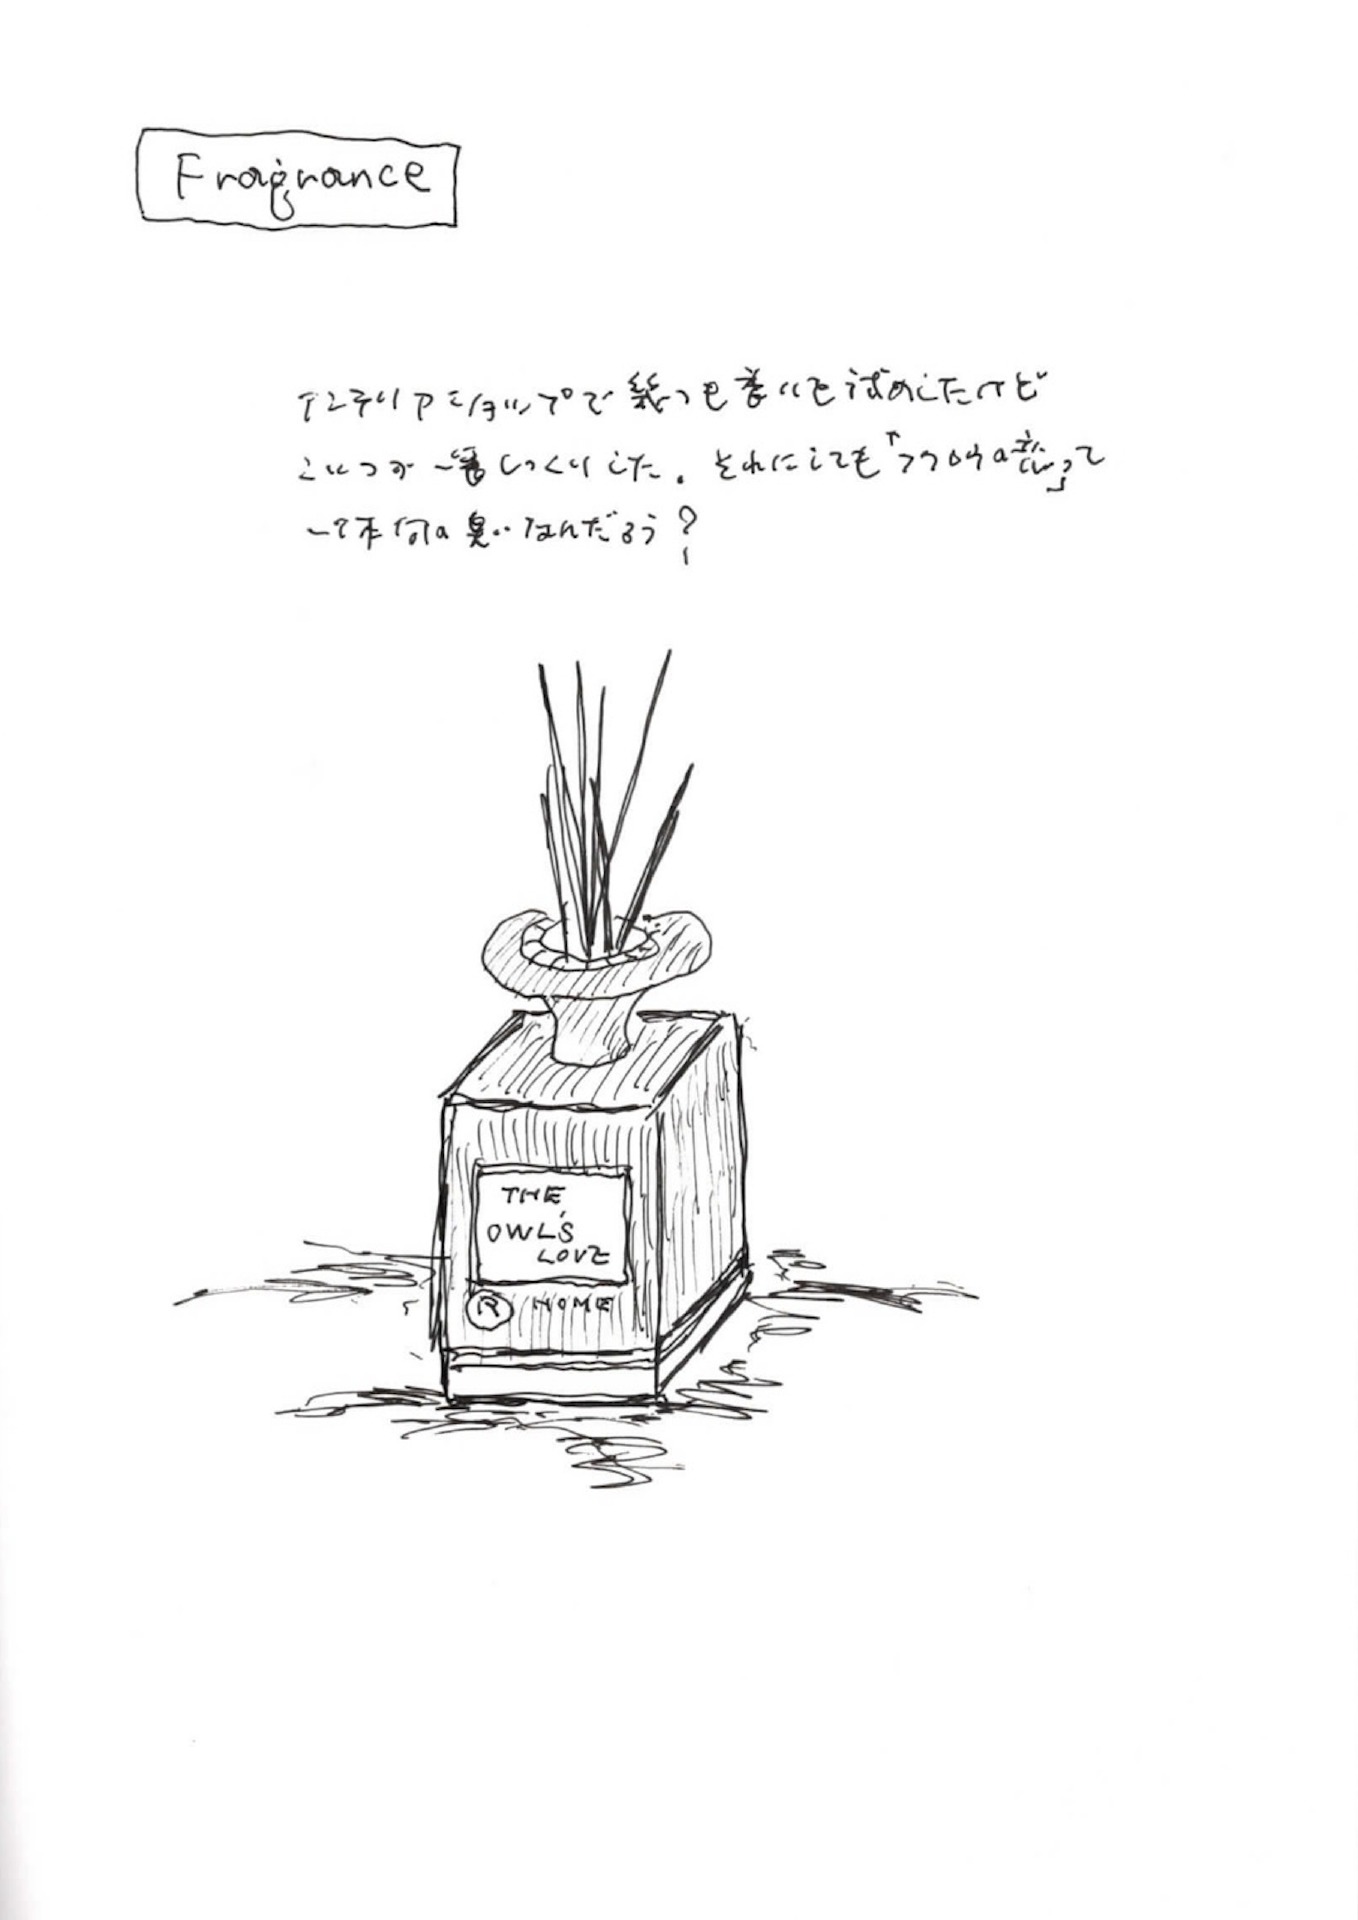 Fragrance
インテリアショップで幾つも香いを試めしたけど
こいつが一番しっくりした。それにしても「フクロウの恋」って
一体何の臭いなんだろう？
THE
OWL'S
LOVE
R HOME